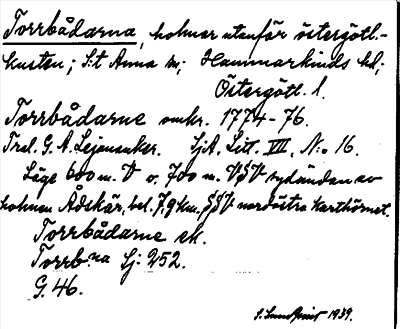 Torrbådarna, holmar utanför östergötl.-
kusten; S:t Anna sn; Hammarkinds hd;
Östergötl. l.
Torrbådarne omkr. 1774-76.
Trol. G. A. Lejonanker. SjA, Litt. VII, No 16.
Läge 600 m. V o. 700 m. VSV sydändan av
holmen Ådskär, bel. 7,9 km. SSV nordöstra karthörnet.
Torrbådarne ek.
Torrb:na Sj: 252.
G. 46.
S. 1939.